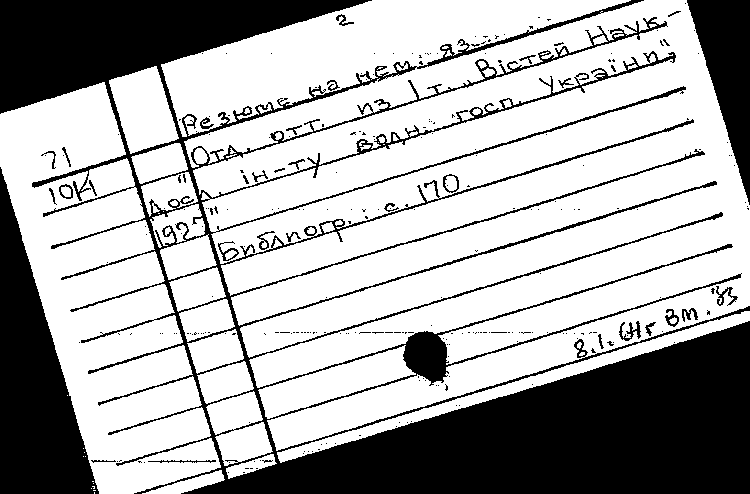 2
Резюме на нем. яз.
71 Отд. отт. из 1 т. „Вістей Наук.-
10И досл. ін-ту водн. госп. України",
1927".
Библиогр.: с. 170.
8.1.64г Вт.